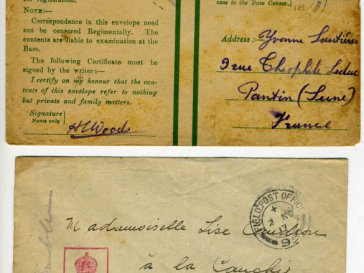 for registration.
NOTE:—
Correspondence in this envelope need
not be censored Regimentally. The
contents are liable to examination at the
Base.
The following Certificate must
be signed by the writer:—
I certify on my honour that the con-
tents of this envelope refer to nothing
but private and family matters.
Signature
Name only
H Woods
case to the Base Censor.)
Address:- Yvonne
9 rue Théophile
Pantin (Seine)
France
FIELD POST OFFICE
Mademoiselle Lise
à la